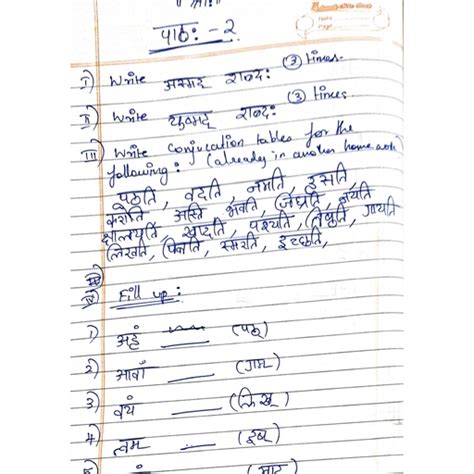 पाठ: - २
I) Write अस्मद् शब्द: (3) times.
II) Write युष्मद् शब्द: (3) times.
III) Write conjucation tables for the
following: (already in another home work)
पठति, वदति, नमति, हसति
करोति, अस्ति, भवति, (जिघ्रति, नयति
क्षालयति, खादति, पश्यति, तिष्ठति, गायति
लिखति, पिबति, स्मरति, इच्छति,
IV) Fill up:
1) अहं (पठ्)
2) आवां ____ (गम)
3) वयं ____ (लिख्)
4) त्वम ____ (इष्)